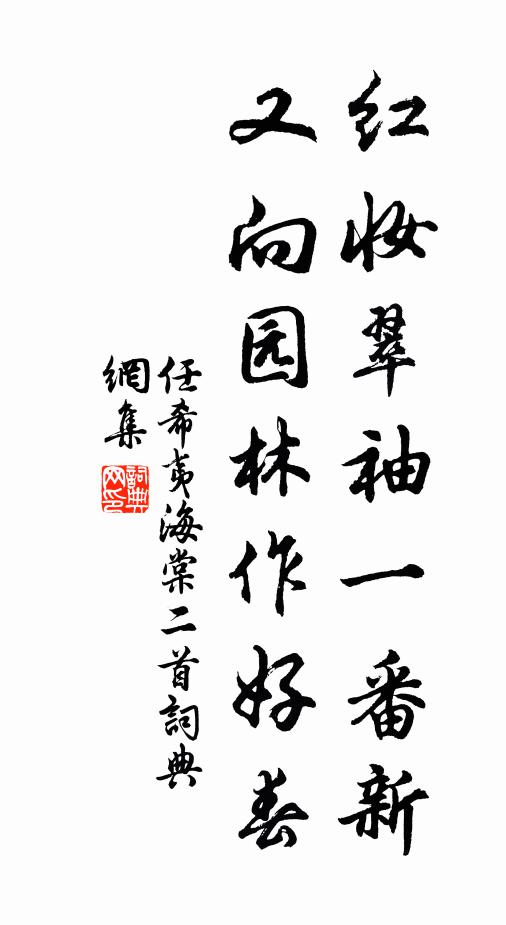 红妆翠袖一番新
又向园林作好春
任希夷海棠二首詞典
網集
詞典网印